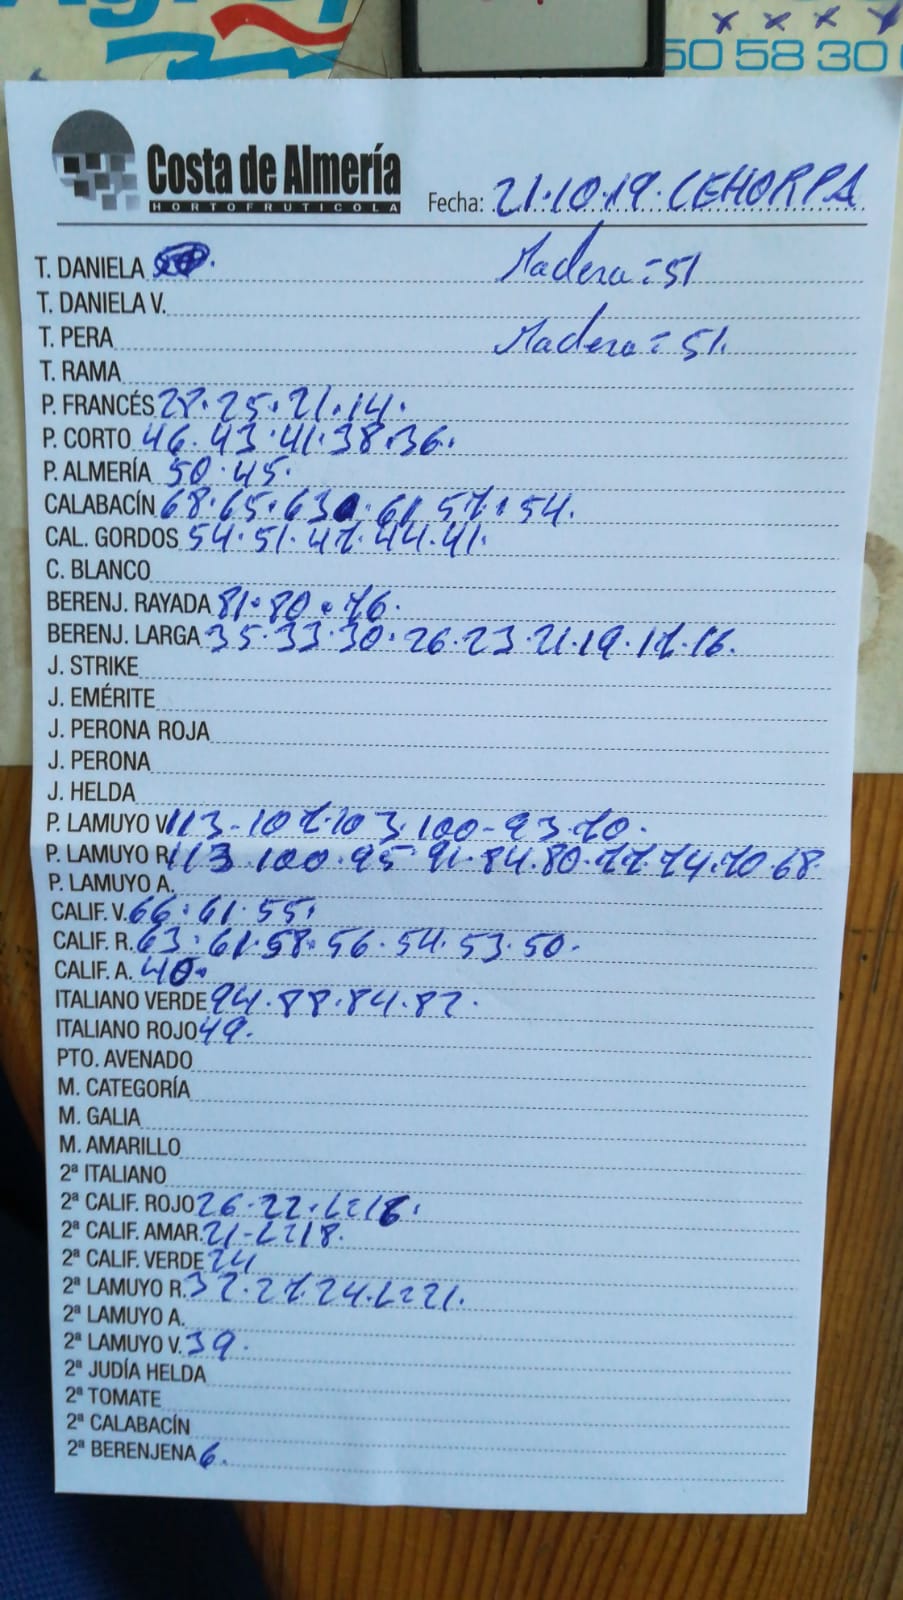 50 58 30
Costa de Almería
HORTOFRUTICOLA
Fecha: 21.10.19. CEHORPA
T. DANELA Madera = 51
T. DANIELA V.
T. PERA Madera = 51.
T. RAMA
P. FRANCÉS 28. 25. 21. 14.
P. CORTO 46. 43. 41. 38. 36.
P. ALMERÍA 50. 45.
CALABACÍN 68. 65. 63. 61. 57. 54.
CAL. GORDOS 54. 51. 47. 44. 41.
C. BLANCO
BERENJ. RAYADA 81. 80. 76.
BERENJ. LARGA 35. 33. 30. 26. 23. 21. 19. 17. 16.
J. STRIKE
J. EMÉRITE
J. PERONA ROJA
J. PERONA
J. HELDA
P. LAMUYO V. 113 - 107. 103. 100 - 93. 70.
P. LAMUYO R. 113. 100. 95. 91. 84. 80. 77. 74. 70. 68.
P. LAMUYO A.
CALIF. V. 66. 61. 55.
CALIF. R. 63. 61. 58. 56. 54. 53. 50.
CALIF. A. 40.
ITALIANO VERDE 94. 88. 84. 82.
ITALIANO ROJO 49.
PTO. AVENADO
M. CATEGORÍA
M. GALIA
M. AMARILLO
2ª ITALIANO
2ª CALIF. ROJO 26. 22. L=16.
2ª CALIF. AMAR. 21 - L=18.
2ª CALIF. VERDE 24
2ª LAMUYO R. 32. 27. 24. L=21.
2ª LAMUYO A.
2ª LAMUYO V. 39.
2ª JUDÍA HELDA
2ª TOMATE
2ª CALABACÍN
2ª BERENJENA 6.